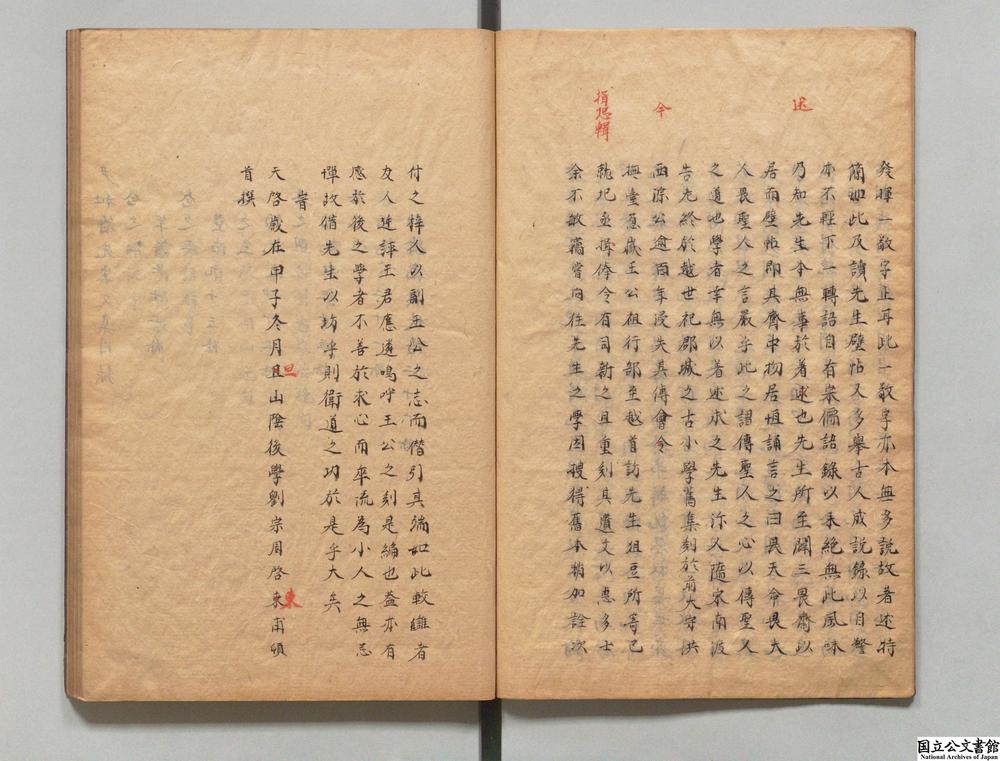 發暉一敬字正耳此一敬字亦本無多說故著述特
簡如此及讀先生壁帖又多舉古人成說錄以自警
本不輕下一轉語自有宋儒語錄以來絕無此風味
乃知先生本無事於着述也先生所至闢三畏齋以
居而壁帖即其齋中物居恒誦言之曰畏天命畏大
人畏聖人之言嚴乎此之謂傳聖人之心以傳聖人
之道也學者幸無以著述求之先生沵又隨宋南渡
告老終於越世祀郡城之古小學舊集刻於前大守洪
西淙公逾百年浸失其傳會令
撫臺蔥嶽王公徂行部至越首訪先生俎豆所等已
就圮亟捐俸令有司新之且重刻其遺文以惠多士
余不敏竊嘗向往先生之學因搜得舊本稍加詮次
述
今
揖恐輯
付之梓人以副王公之志而僣引其端如此較讎者
友人述評王君應遴嗚呼王公之刻是編也蓋亦有
感於後之學者不善於求心而率流為小人之無忌
憚故借先生以坊乎則衛道之功於是乎大矣
旹
天啓歲在甲子冬月且山陰後學劉宗周啓東甫頓
首撰
旦
東
国立公文書館
National Archives of Japan